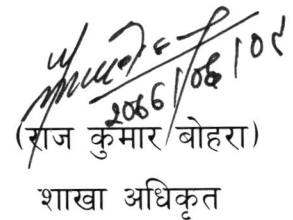 २०७७।०६।०९
(राज कुमार बोहरा)
शाखा अधिकृत